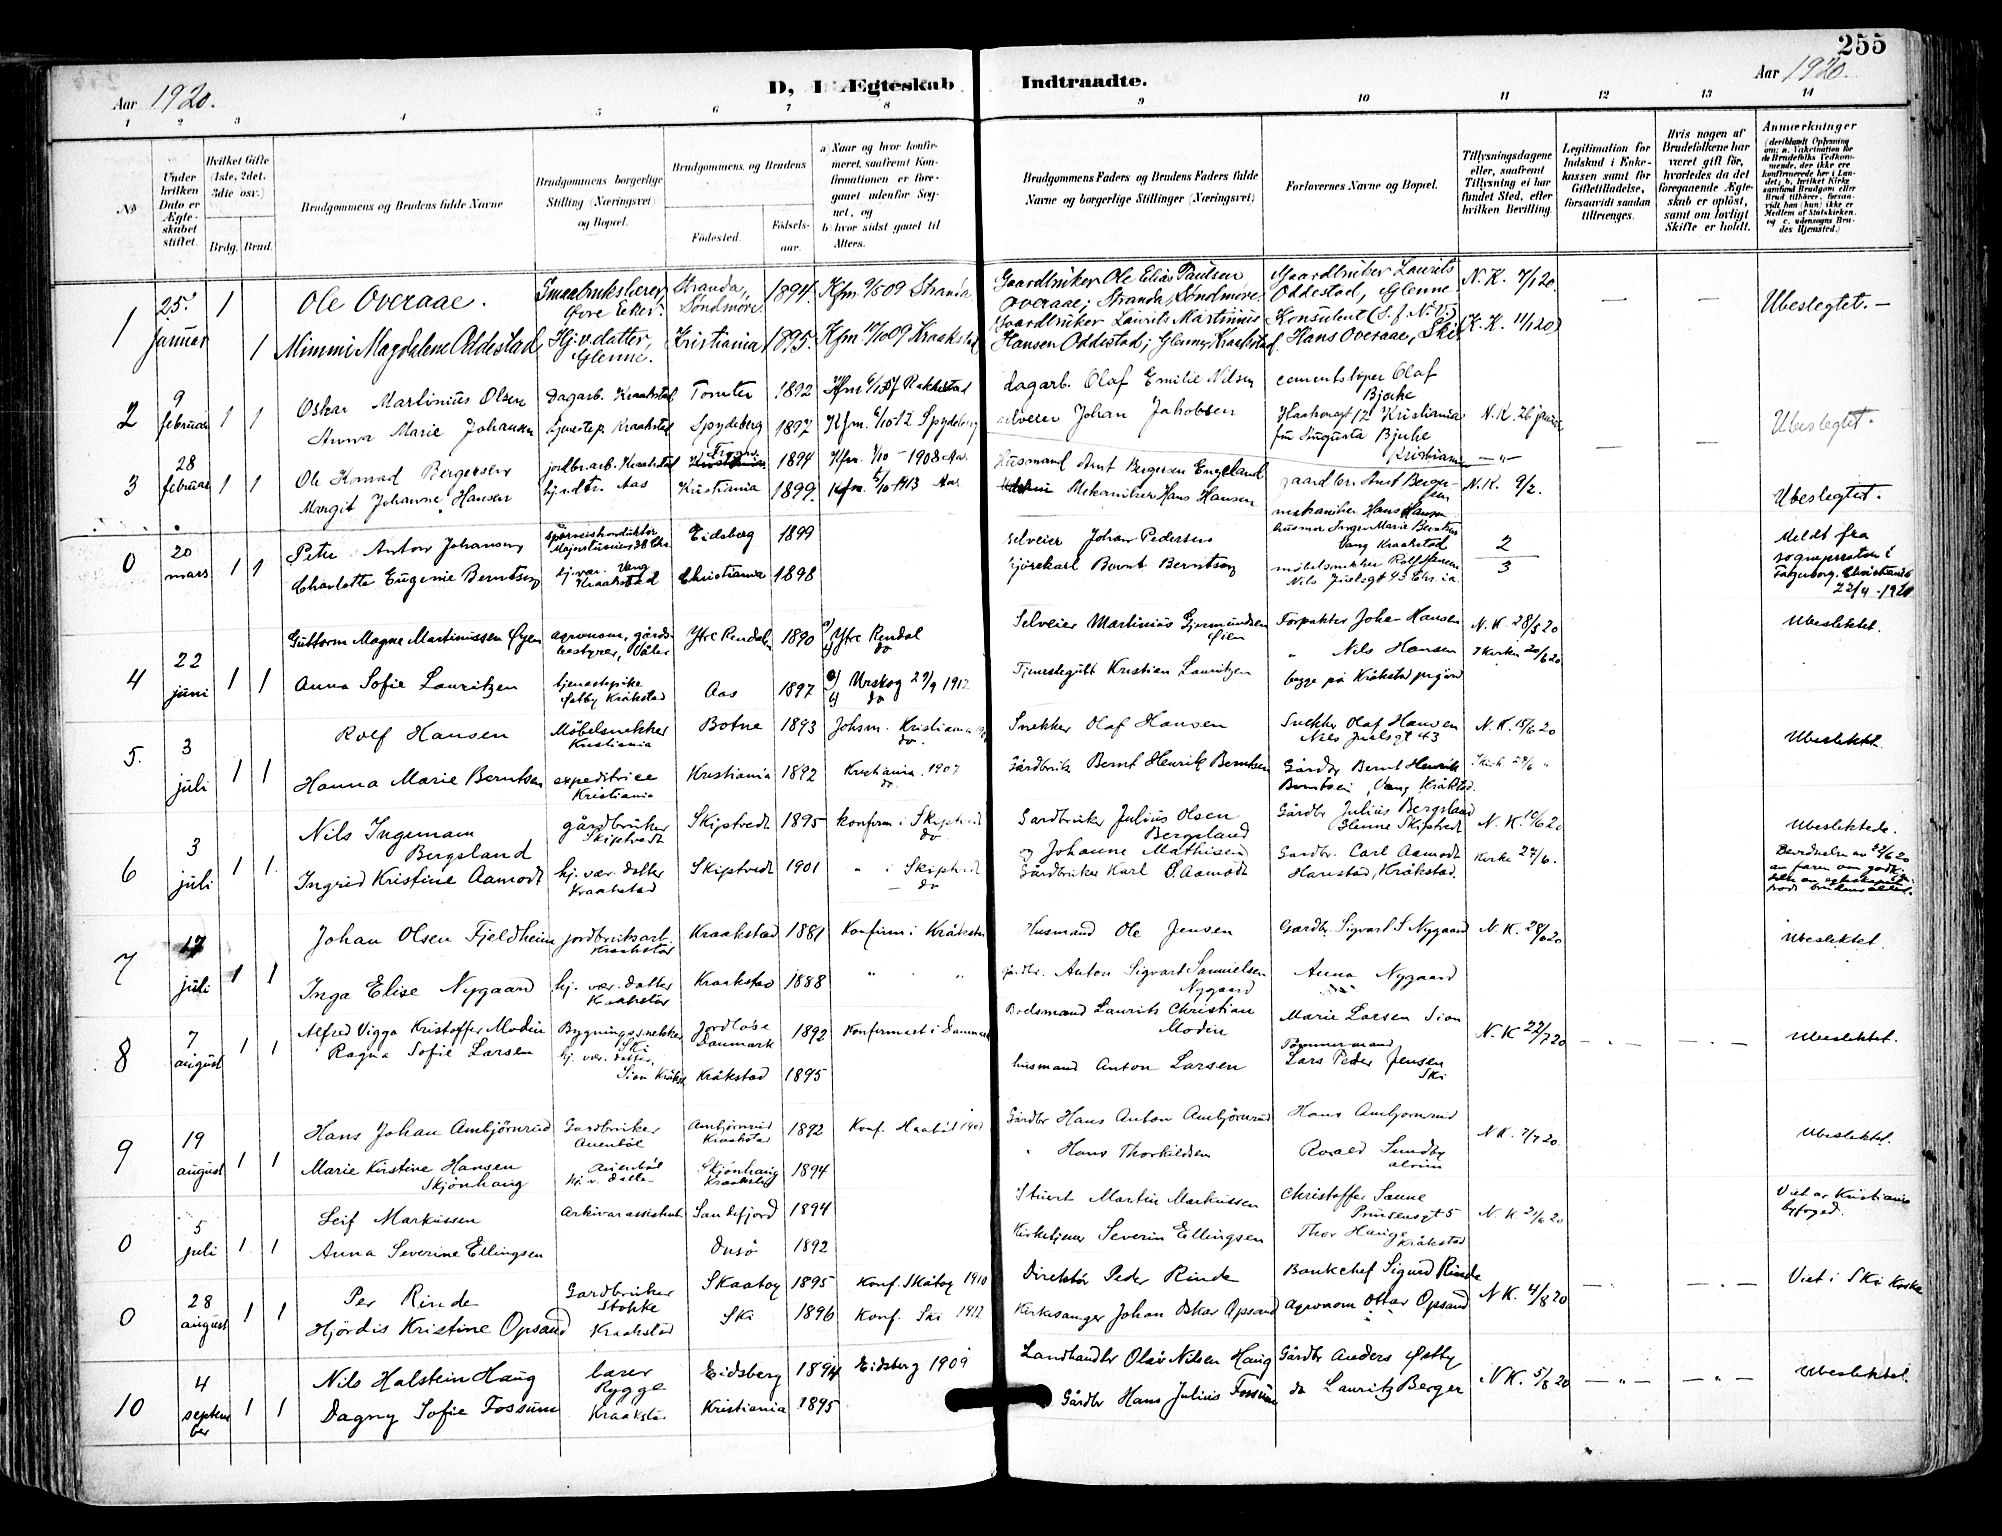 255
Aar 1920.
D, I. Ægteskab Indtraadte.
Aar 1920.
1 2 3 4 5 6 7 8 9 10 11 12 13 14
No
Under hvilken Dato er Ægteskabet stiftet.
Hvilket Gifte (1ste, 2det, 3die osv.)
Brdg. Brud.
Brudgommens og Brudens fulde Navne
Brudgommens borgerlige Stilling (Næringsvei) og Bopæl.
Brudgommens og Brudens
Födested. Födselsaar.
a) Naar og hvor konfirmeret, saafremt Konfirmationen er foregaaet udenfor Sognet, og
b) hvor sidst gaaet til Alters.
Brudgommens Faders og Brudens Faders fulde Navne og borgerlige Stillinger (Næringsvei)
Forlovernes Navne og Bopæl.
Tillysningsdagene eller, saafremt Tillysning ei har fundet Sted, efter hvilken Bevilling.
Legitimation for Indskud i Enkekassen samt for Giftetilladelse, forsaavidt saadan tiltrænges.
Hvis nogen af Brudefolkene har været gift før, hvorledes da det foregaaende Ægteskab er opløst, samt om lovligt Skifte er holdt.
Anmærkninger
(deriblandt Oplysning om: a. Vakcination for de Brudefolks Vedkommende, der ikke ere konfirmerede her i Landet; b. hvilket Kirkesamfund Brudgom eller Brud tilhører, forsaavidt han (hun) ikke er Medlem af Statskirken, og c. udensogns Brudes Hjemsted.)
1 25. Januar 1 Ole Overaae. Smaabrukslærer Øvre Eker. Stranda, Søndmøre 1894. Kfm. 9/5 09 Stranda Gaardbruker Ole Elias Paulsen Overaae; Stranda, Søndmøre Gaardbruker Laurits Oddestad, Glenne N. K. 7/1 20. — — Ubeslegtet. —
1 Mimmi Magdalene Oddestad Hj.v.datter, Glenne. Kristiania 1895. Kfm. 09 Kraakstad Gaardbruker Laurits Martinius Hansen Oddestad; Glenne, Kraakstad. Konsulent Hans Overaae, Ski (K. K. 11/1 20)
2 9 februar 1 1 Oskar Martinius Olsen Dagarb. Kraakstad Tomter 1892 Kfm. Rakkestad dagarb. Olaf Emilie Nilsen cementstøper Olaf Bjerke
Anna Marie Johansen tjenestep. Kraakstad Spydeberg 1897 Kfm. 6/10 12 Spydeberg selveier Johan Jakobsen Haakonsgt 12 Kristiania fru Augusta Bjerke Kristiania N. K. 26 januar — — Ubeslegtet.
3 28 februar 1 1 Ole Konrad Bergersen jordbr.arb. Kraakstad 1894 Kfm. 1/10 - 1908 Aas Husmand Ant Bergersen Engeland gaardbr. Ant Bergersen —"—
Margit Johanne Hansen hj.v.dtr. Aas Kristiania 1899. Kfm. 5/10 1913 Aas Mekaniker Hans Hansen mekaniker Hans Hansen N. K. 9/2. Ubeslegtet.
0 20 mars 1 1 Peter Anton Johansen sporveiskonduktør Eidsberg 1899 selveier Johan Pedersen husmor Inga Marie Berntsen Vang Kraakstad 2 Meldt fra sognepresten i Fagerborg, Christiania 22/4 - 1920
Charlotte Eugenie Berntsen hj.vær. Vang Kraakstad Christiania 1898 kjørekarl Bernt Berntsen møbelsnekker Rolf Hansen Nils Juelsgt 43 Chr.ia. 3
4 22 juni 1 1 Guttorm Magne Martinussen Øyen agronom, gårdsbestyrer, Våler Ytre Rendalen 1890 a) Ytre Rendal b) do Selveier Martinius Gjermundsen Øien Forpakter Johan Hansen N. K. 28/5 20 Ubeslektet.
Anna Sofie Lauritzen tjenestepike Østby Kråkstad Aas 1897 a) Urskog 29/9 1912 b) do Tjenestegutt Kristian Lauritzen " Nils Hansen begge på Kråkstad prgård I kirken 20/6 20
5. 3 juli 1 1 Rolf Hansen Möbelsnekker Kristiania Botne 1893 Johsm. Kristiania do. Snekker Olaf Hansen Snekker Olaf Hansen Niels Juelsgt 43 N. K. 15/6 20 Ubeslektet.
Hanna Marie Berntsen expeditrice Kristiania Kristiania 1892 Kristiania 1907 do. Gårdbrk Bernt Henrik Berntsen Gårdbr Bernt Henrik Berntsen, Vang, Kråkstad.
6 3 juli 1 1. Nils Ingemann Bergsland gårdbruker Skiptvedt Skiptvedt 1895 konfirm. i Skiptvedt do Gardbruker Julius Olsen Bergsland og Johanne Mathisen Gårdbr Julius Bergsland Glenne Skiptvedt N. K. 10/6 20 Ubeslektede.
Ingrid Kristine Aamodt hj. vær. datter Kraakstad Skiptvedt 1901 " i Skiptvedt — do Gårdbruker Karl Ø. Aamodt Gardbr. Carl Aamodt Harestad, Kråkstad. Kirke 27/6.
7 17 juli 1 1 Johan Olsen Fjeldheim jordbruksarb. Kraakstad Kraakstad 1881 Konfirm i Kråkstad Husmand Ole Jensen Gardbr. Sigvart S Nygaard N. K. 28/6 20 Ubeslektet.
Inga Elise Nygaard hj. vær. datter Kraakstad Kraakstad 1888 " " " gårdbr. Anton Sigvart Samuelsen Nygaard Anna Nygaard
8 7 august 1 1 Alfred Viggo Kristoffer Modin Bygningssnekker Ski Jordløse Danmark 1892 Konfirmert i Danmark Bodsmand Laurits Christian Modin Marie Larsen Sion N. K 22/7 20 Ubeslektet.
Ragna Sofie Larsen hj. vær. datter, Sion Kråkst. Kråkstad 1895 husmand Anton Larsen Tømmermand Lars Peder Jensen Ski
9 19 august 1 1 Hans Johan Ambjörnrud Gardbruker Auenböl Ambjörnrud Kraakstad 1892 Konf. Haaböl Gårdbr Hans Anton Ambjörnrud Hans Ambjørnrud N K. 7/7 20. Ubeslektet.
Marie Kirstine Hansen Skjönhaug Auenböl hj. v. datter Skjönhaug Kraakstad 1894 " Hans Thorkildsen Roald Sundby
0 5 juli 1. 1 Leif Markussen Arkivarassistent Sandefjord 1894 Stuert Martin Markussen Christoffer Sanne Prinsensgt 5 N. K 21/6 20 Viet av Kristiania byfoged.
Anna Severine Ellingsen Onsö 1892 Kirketjener Severin Ellingsen Thor Hauge Kråkstad
0 28 august 1 1 Per Rinde Gardbruker Stokke Skaatøy 1895 Konf. Skåtøy 1910 Direktør Peder Rinde Bankchef Sigurd Rinde N K. 4/8 20 Viet i Ski kirke
Hjördis Kristine Opsand Kraakstad Ski 1896 Konf. Ski 1912 Kirkesanger Johan Oskar Opsand Agronom Ottar Opsand
10 4 september 1 1 Nils Halstein Haug lærer Rygge Eidsberg 1894 Eidsberg 1909 Landhandler Olav Nilsen Haug Gårdbr Anders Østby N K. 5/8 20 — " — — " — Ubeslektet.
Dagny Sofie Fossum Kraakstad Kristiania 1895 Gårdbr Hans Julius Fossum do Lauritz Berger